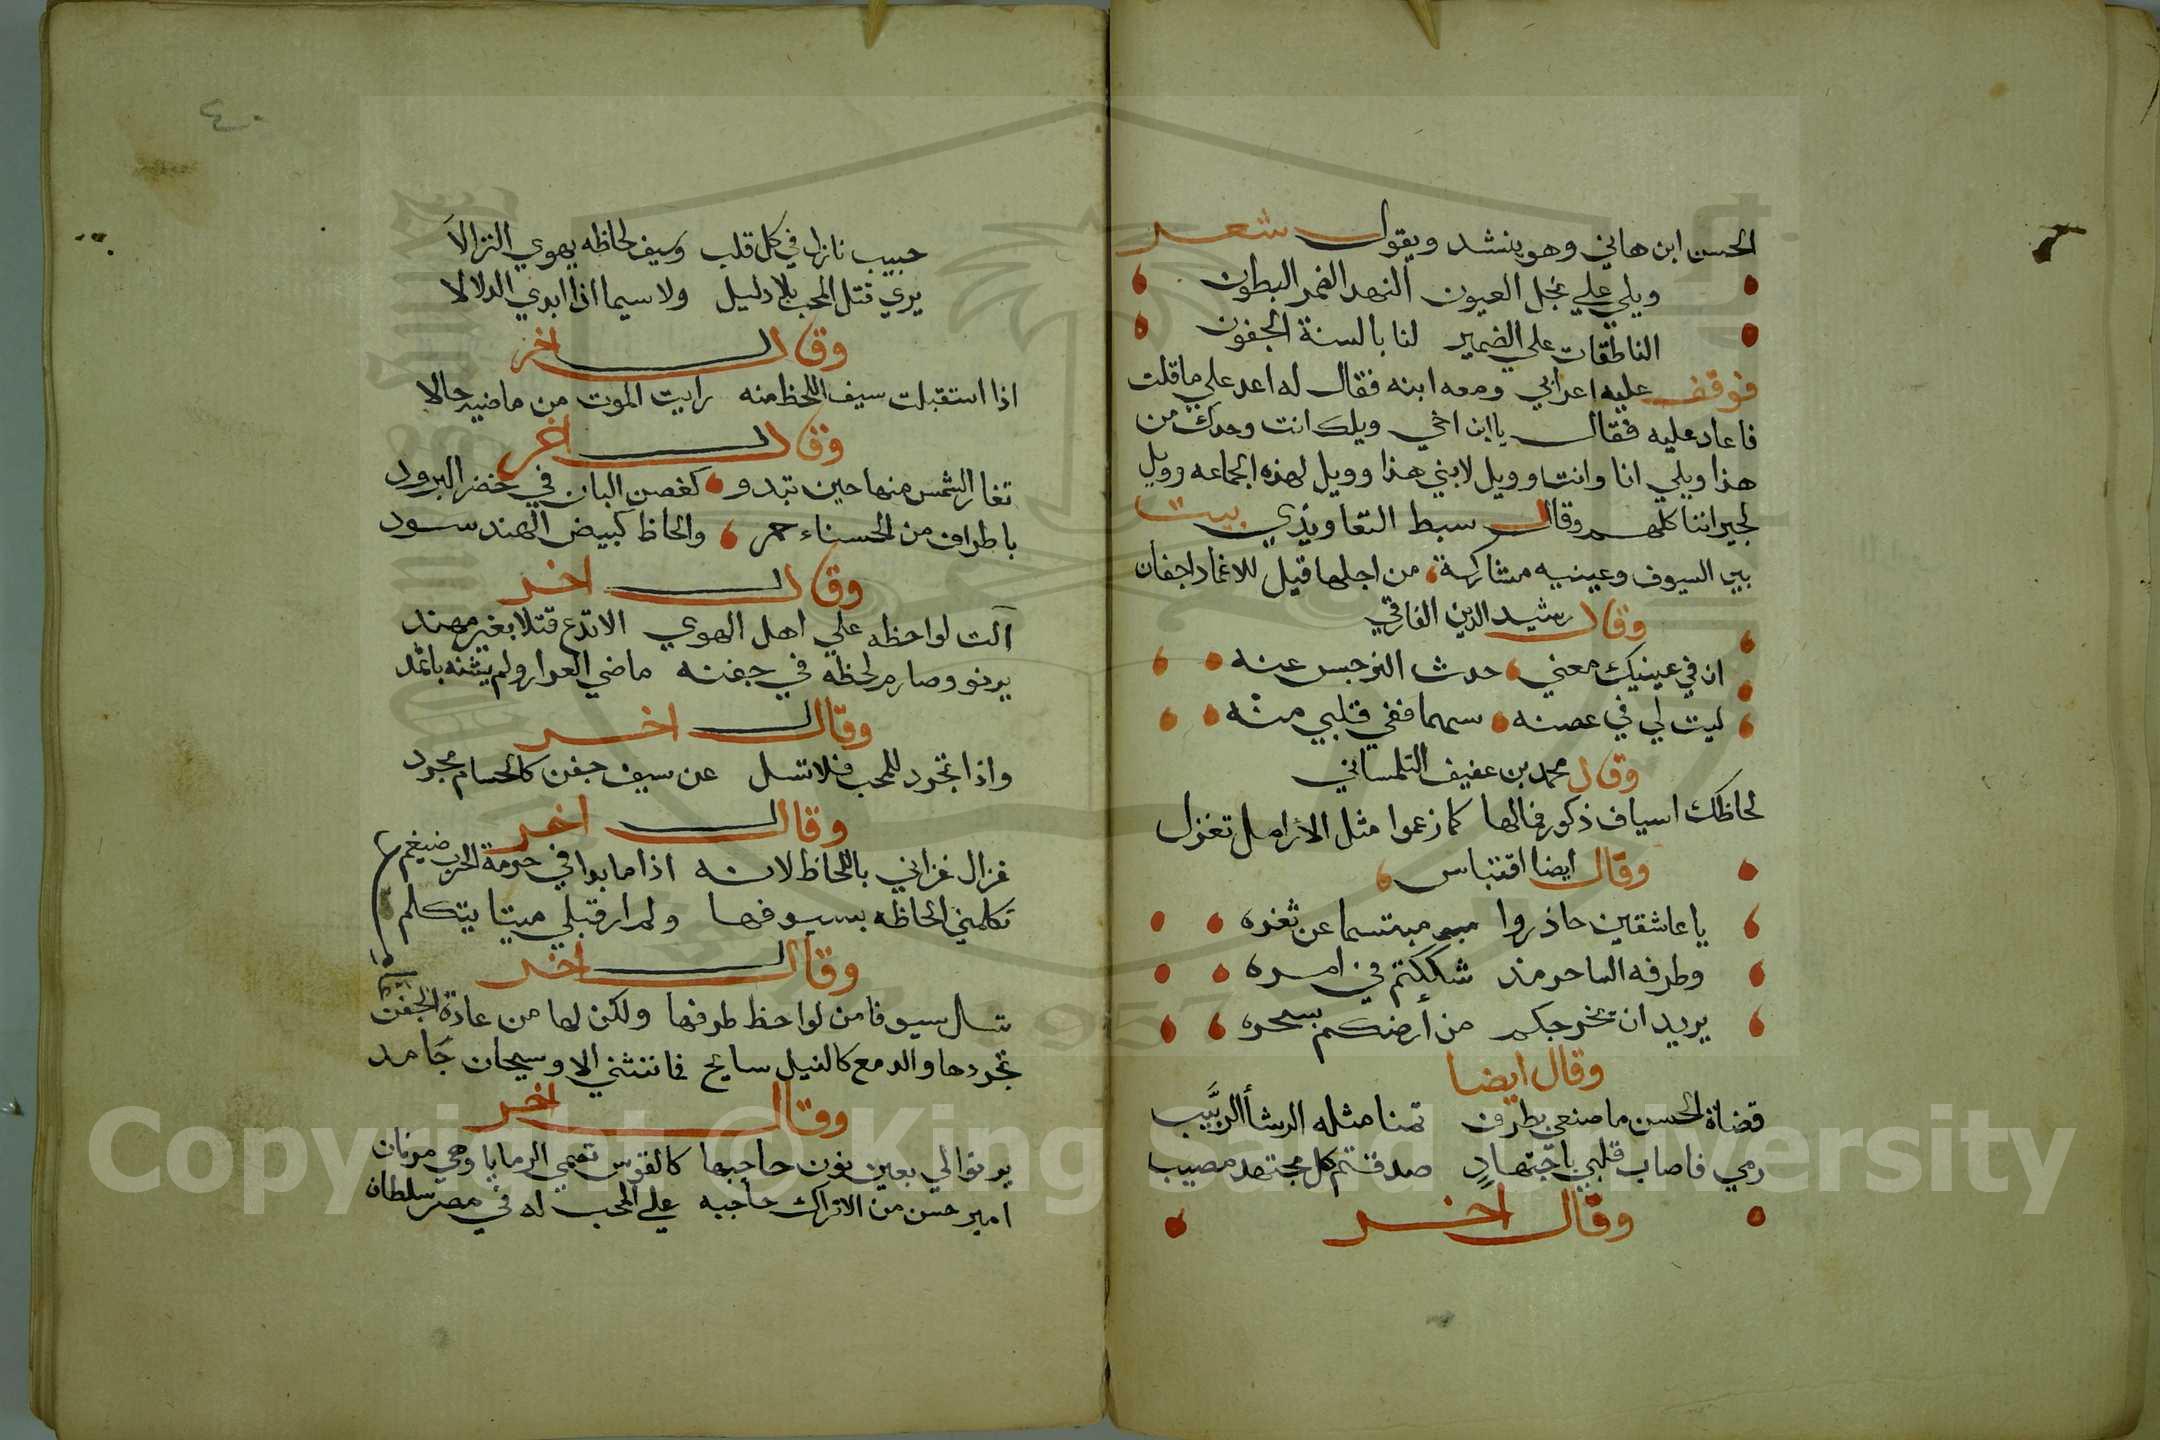 الحسن ابن هاني وهو ينشد ويقول شعر
ويلي علي نجل العيون النهد الضمر البطون
الناطقات علي الضمير لنا بالسنة الجفون
فوقف عليه اعرابي ومعه ابنه فقال له اعد علي ما قلت
فاعاد عليه فقال يا ابن اخي ويلك انت وحدك من
هذا ويلي انا وانت وويل لابني هذا وويل لهذه الجماعه وويل
لجيراننا كلهم وقال سبط التعاويذي بيت
بين السيوف وعينيه مشاركة من اجلها قيل للاغماد اجفان
وقال رشيد الدين الفارقي
ان في عينيك معني حدث النرجس عنه
ليت لي في غصنه سهما ففي قلبي منه
وقال محمد بن عفيف التلمساني
لحاظك اسياف ذكور فمالها كما زعموا مثل الارامل تغزل
وقال ايضا اقتباس
يا عاشقين حاذروا مبتسما عن ثغره
وطرفه الساحر مذ شككتم في امره
يريد ان يخرجكم من أرضكم بسحره
وقال ايضا
قضاة الحسن ما صنعي بطرف تمنا مثله الرشأ الربيب
رمي فاصاب قلبي باجتهادٍ صدقتم كل مجتهد مصيب
وقال اخر
٤٠
حبيب نازل في كل قلب وسيف لحاظه يهوي النزالا
يري قتل المحب بلا دليل ولا سيما اذا ابدي الدلالا
وقال اخر
اذا استقبلت سيف اللحظ منه رايت الموت من ماضيه حالا
وقال اخر
تغار الشمس منها حين تبدو كغصن البان في خضر البرود
باطراف من الحسناء حمر والحاظ كبيض الهند سود
وقال اخر
آلت لواحظه علي اهل الهوي الا تدع قتلا بغير مهند
يرنو وصارم لحظه في جفنه ماضي الغرار ولم يثنه باثمد
وقال اخر
واذا تجرد للمحب فلا تسل عن سيف جفن كالحسام مجرد
وقال اخر
غزال غزاني باللحاظ لانه اذا ما بدا في حومة الحرب ضيغم
تكلمني الحاظه بسيوفها ولم ار قبلي ميتا يتكلم
وقال اخر
تسل سيوفا من لواحظ طرفها ولكن لها من عادة الجفن
تجردها والدمع كالنيل سايح فما تنثني الا وسيحان جامد
وقال اخر
يرنوا لي بعين نون حاجبها كالقوس تصمي الرمايا وهي مرنان
امير حسن من الاتراك حاجبه علي المحب له في مصر سلطان
Copyright © King Saud University
1957